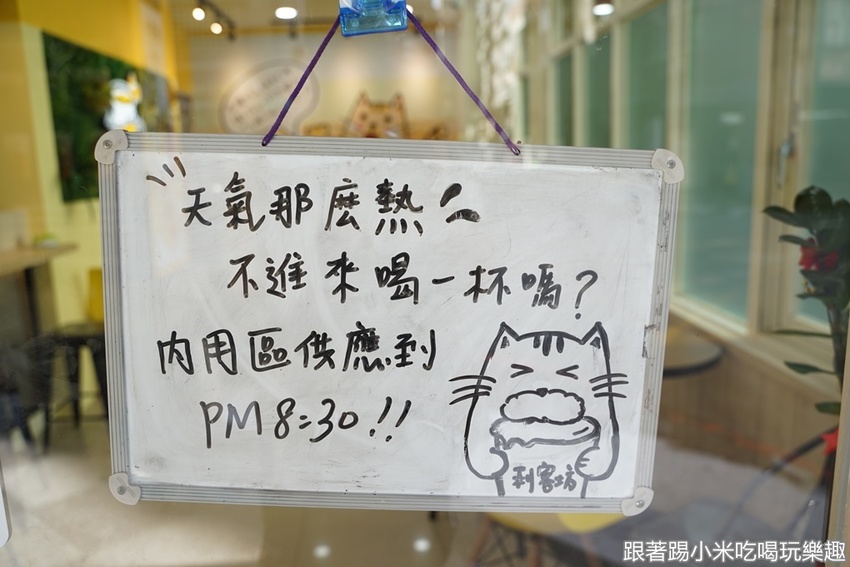 天氣那麼熱
不進來喝一杯嗎?
內用區供應到
PM8:30!!
利客坊
跟著踢小米吃喝玩樂趣